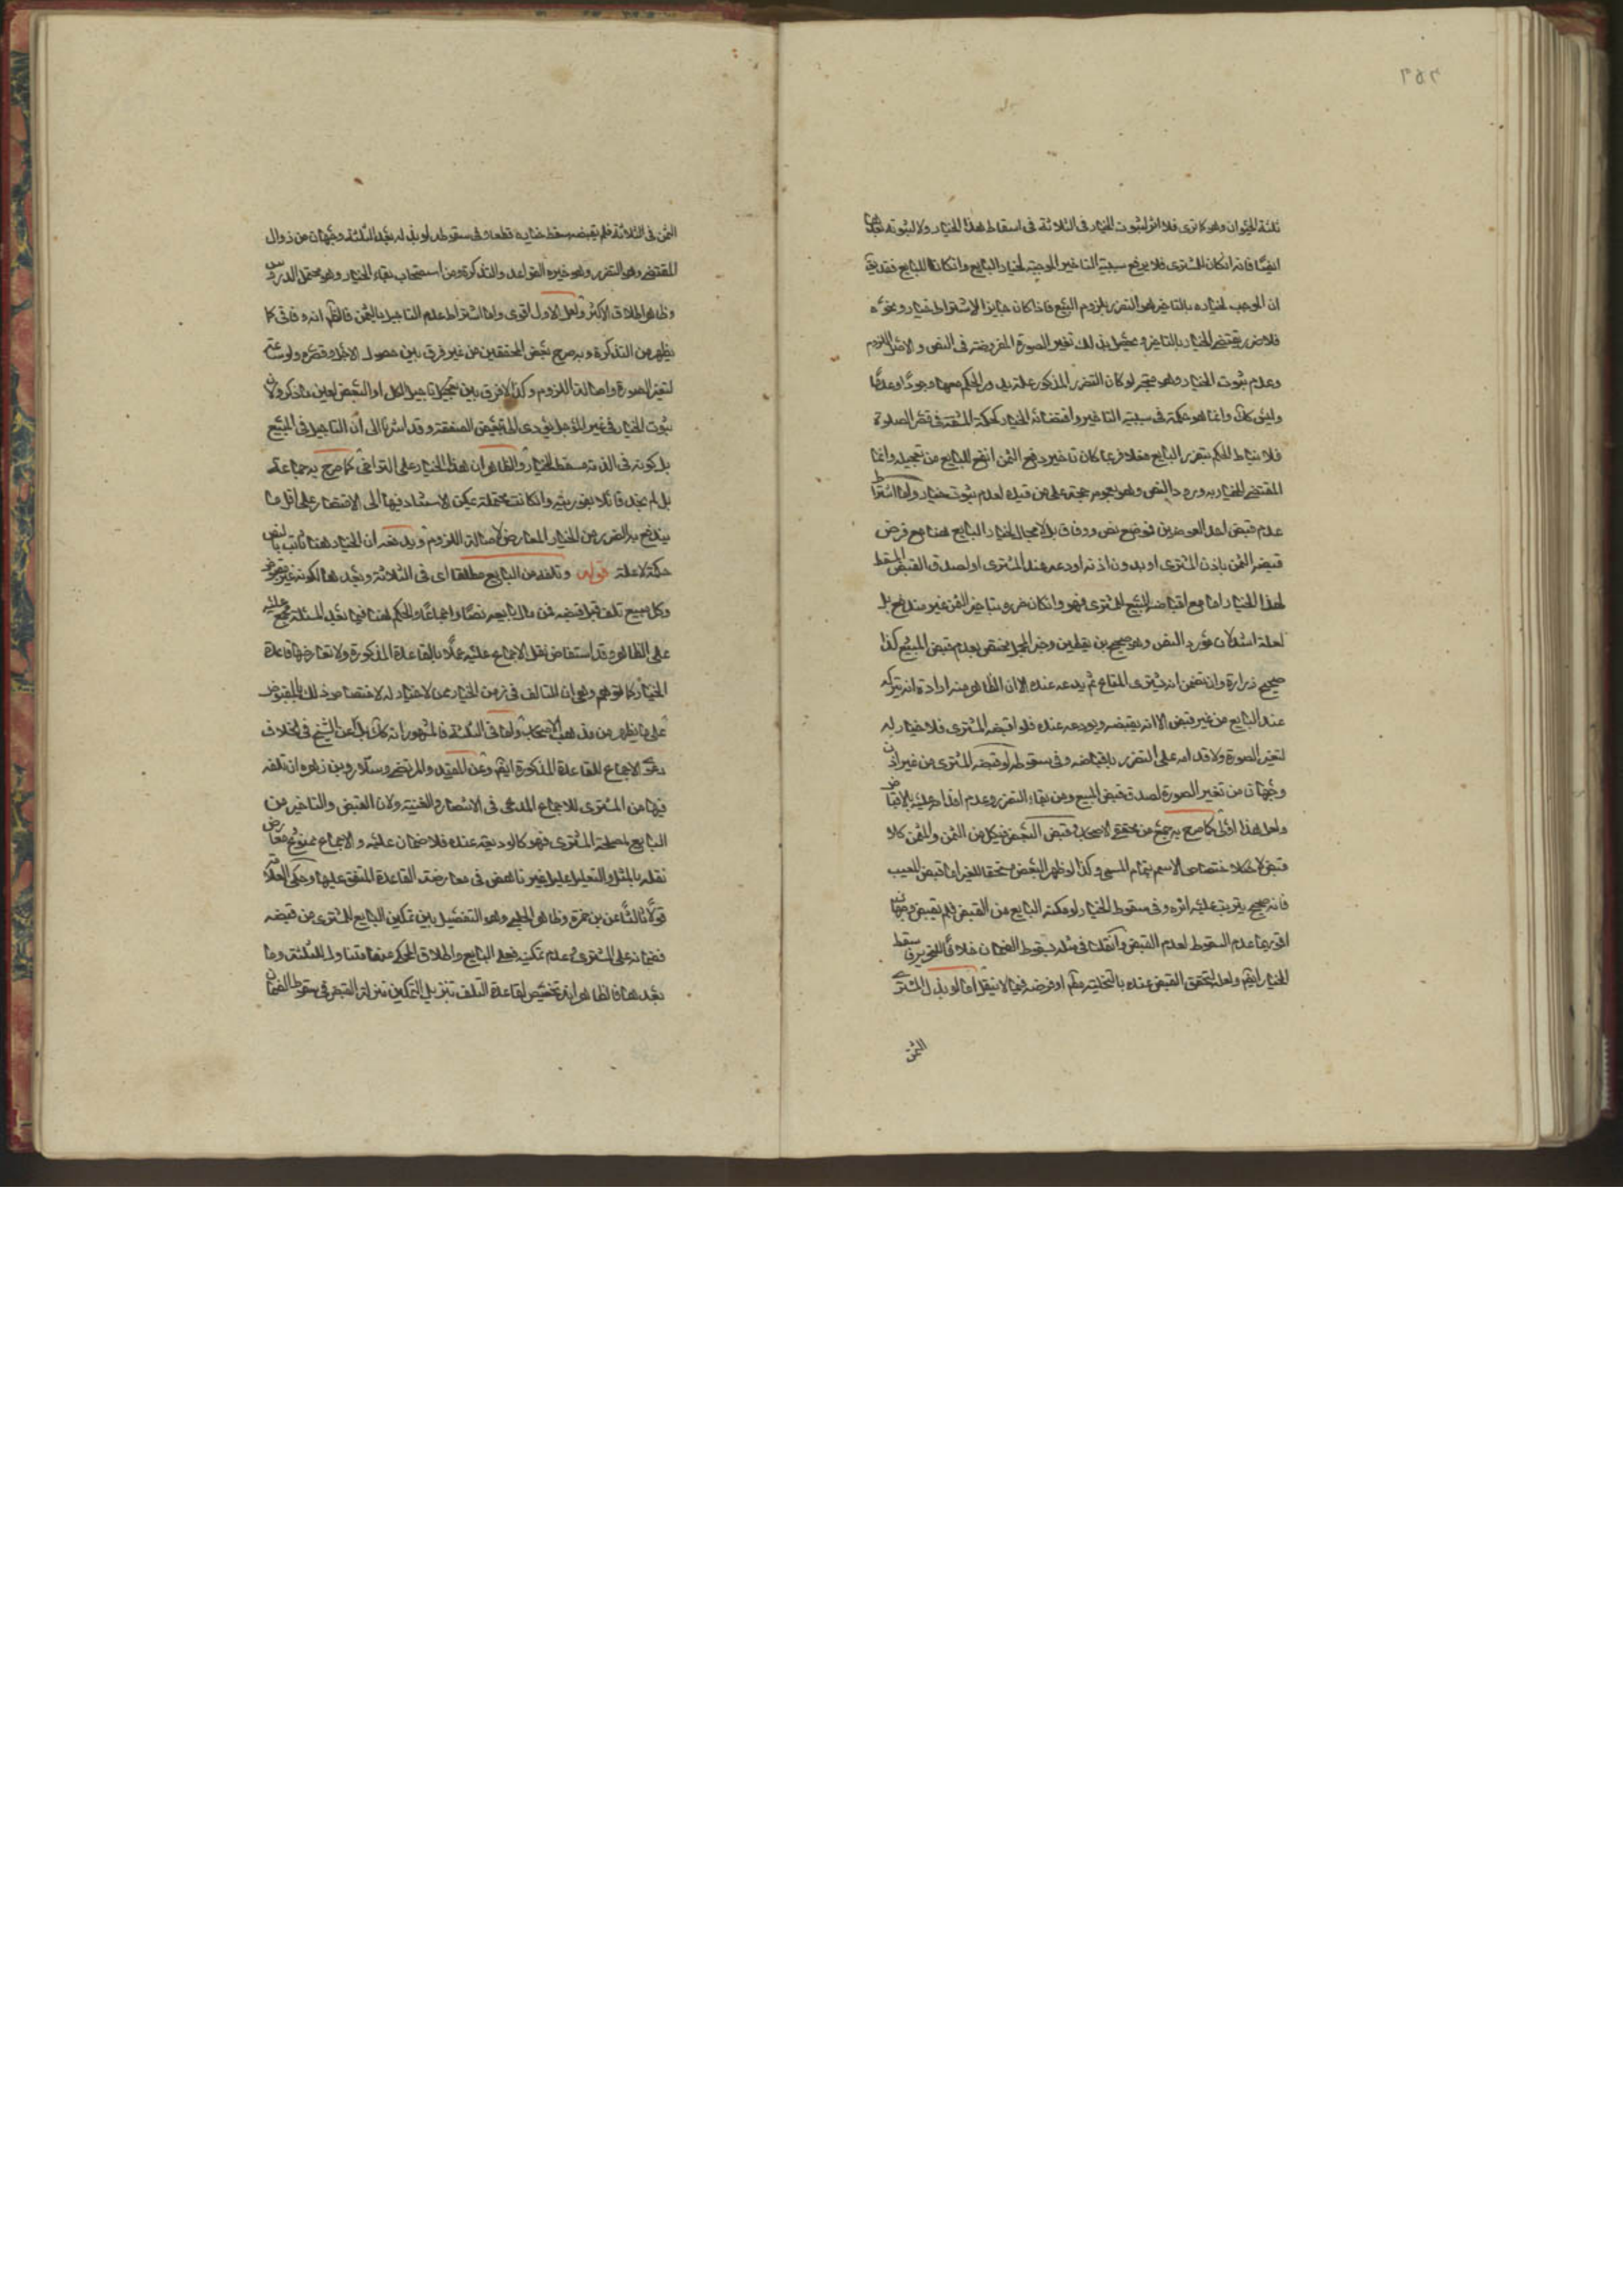 ثلثة الحيوان وهو كما ترى فلا اثر لثبوت الخيار فى الثلاثة فى اسقاط هذا الخيار ولا لثبوته بعدها
ايضًا فانه انكان للمشترى فلا يرفع سببية التاخير الموجبة لخيار البايع وانكان للبايع فقد يق
ان الموجب لخياره بالتاخير هو التضرر بلزوم البيع فاذا كان جايزا لاشتراط خيار ونحوه
فلا ضرر يقتضى الخيار بالتاخير ويحصل بذلك تغير الصورة المفروضة فى النص والاصل اللزوم
وعدم ثبوت الخيار وهو متجه لو كان التضرر المذكور علة يدور الحكم معها وجودًا وعدمًا
وليس كك وانما هو حكمة فى سببية التاخير واقتضائه الخيار كحكمة المشقة فى قصر الصلوة
فلا يناط الحكم بتضرر البايع فعلا فربما كان تاخير دفع الثمن انفع للبايع من تعجيله وانما
المقتضى للخيار به ورود النص وهو بعمومه حجة على من قيده لعدم ثبوت خيار واما اشتراط
عدم قبض احد العوضين فموضع نص ووفاق بل لا مجال لخيار البايع هنا مع فرض
قبضه الثمن باذن المشترى او بدون اذنه او دعه عند المشترى او لصدق القبض المسقط
لهذا الخيار اما مع اقباضه المبيع للمشترى فهو وانكان ضرره بتاخير الثمن غير مندفع بل
لعله اشد لان مورد النص وهو صحيح بن يقطين وخبر المجل مختص بعدم قبض المبيع كذا
صحيح زرارة وان تضمن انه يشترى المتاع ثم يدعه عنده الا ان الظاهر منه ارادة انه يتركه
عند البايع من غير قبض لا انه يقبضه ويودعه عنده فلو اقبضه المشترى فلا خيار له
لتغير الصورة ولاقدامه على التضرر باقباضه وفى سقوطه لو قبضه المشترى من غير اذن
وجهان من تغير الصورة لصدق قبض المبيع ومن بقاء التضرر وعدم اقدامه عليه بالاقباض
ولعل هذا اولى كما صرح به جمع من محققى الاصحاب وقبض البعض من كل من الثمن والمثمن كلا
قبض لاختصاص الاسم بتمام المسمى وكذا لو ظهر البعض مستحقا للغير اما قبض المعيب
فانه صحيح يترتب عليه اثره وفى سقوط الخيار لو مكنه البايع من القبض فلم يقبض وجهان
اقويهما عدم السقوط لعدم القبض وان قلنا فى مثله بسقوط الضمان خلافًا للتحرير فاسقط
الخيار ايضًا ولعله لتحقق القبض عنده بالتخلية مطلقًا او فرضه فيما لا ينقل اما لو بذل المشترى
الثمن
الثمن فى الثلاثة فلم يقبضه سقط خياره قطعا وفى سقوطه لو بذله بعد الثلثة وجهان من زوال
المقتضى وهو التضرر وهو خيرة القواعد والتذكرة ومن استصحاب بقاء الخيار وهو محتمل الدروس
وظاهر اطلاق الاكثر ولعل الاول اقوى واما اشتراط عدم التاجيل بالثمن فالظاهر انه وفاقى كما
يظهر من التذكرة وبه صرح بعض المحققين من غير فرق بين حصول الاجل وقصره ولو ساعة
لتغير الصورة واصالة اللزوم وكذا لا فرق بين تعجيل تاجيل الكل او البعض لعين ما ذكر ولان
ثبوت الخيار فى غير المؤجل يؤدى الى تبعيض الصفقة وقد اشرنا الى ان التاجيل فى المبيع
بل كونه فى الذمة مسقط للخيار والظاهر ان هذا الخيار على التراخى كما صرح به جماعة
بل لم نجد قائلا بفوريته وانكانت محتملة يمكن الاستناد فيها الى الاقتصار على اقل ما
يندفع به الضرر من الخيار المعارض لاصالة اللزوم ويدفعه ان الخيار هنا ثابت بالنص
حكمة لا علة قوله وتلفه من البايع مطلقا اى فى الثلاثة وبعدها لكونه غير مقبوض
وكل مبيع تلف قبل قبضه فمن مال بايعه نصًا واجماعًا والحكم هنا فيما بعد الثلثة مجمع عليه
على الظاهر وقد استفاض نقل الاجماع عليه عملًا بالقاعدة المذكورة ولا تعارضها قاعدة
الخيار كما توهم وهى ان التالف فى زمن الخيار ممن لا خيار له لاختصاص ذلك بالمقبوض
على ما يظهر من مذهب الاصحاب واما فى الثلثة فالمشهور انه كك بل عن الشيخ فى الخلاف
دعوى الاجماع للقاعدة المذكورة ايضًا وعن المفيد والمرتضى وسلار وبن زهره ان تلفه
فيها من المشترى للاجماع المدعى فى الانتصار والغنية ولان القبض والتاخير من
البايع لمصلحة المشترى فهو كالوديعة عنده فلا ضمان عليه والاجماع ممنوع معارض
نقله بالمثل والتعليل عليل غير ناهض فى معارضة القاعدة المتفق عليها وحكى العلامة
قولًا ثالثًا عن بن حمزة وظاهر الحلبى وهو التفصيل بين تمكين البايع المشترى من قبضه
فضمانه على المشترى وعدم تمكينه فعلى البايع واطلاق الحكى عنهما متناول للثلثة وما
بعدها فالظاهر انه تخصيص لقاعدة التلف بتنزيل التمكين منزلة القبض فى سقوط الضمان